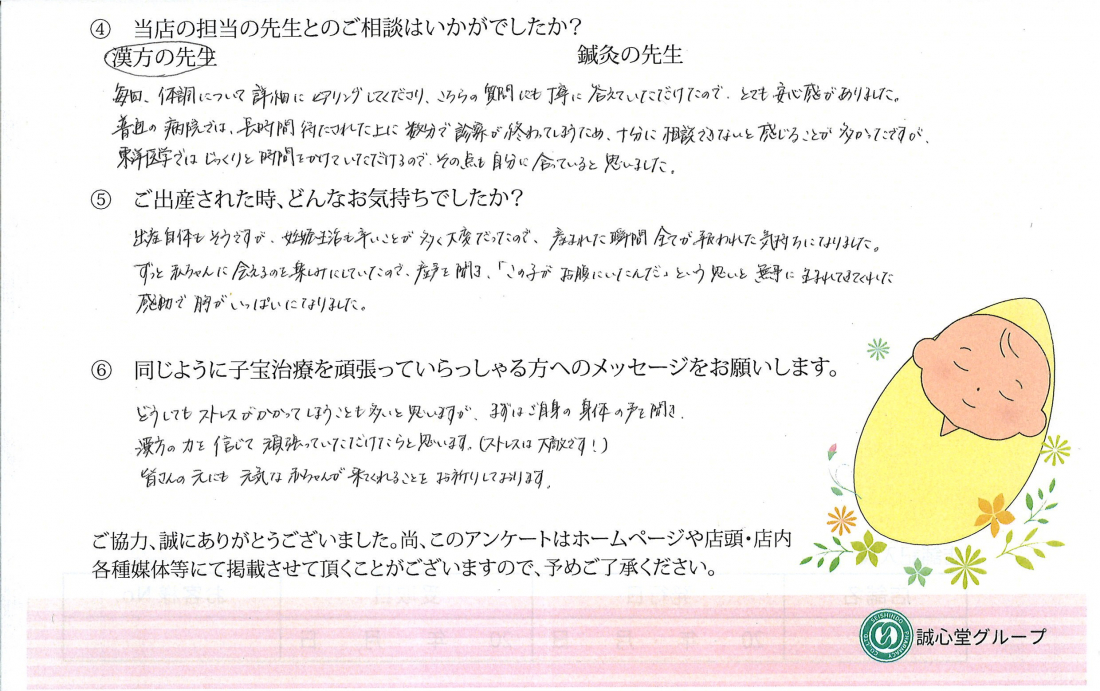 ④ 当店の担当の先生とのご相談はいかがでしたか？
漢方の先生 鍼灸の先生
毎回、体調について詳細にヒアリングしてくださり、こちらの質問にも丁寧に答えていただけたので、とても安心感がありました。
普通の病院では、長時間待たされた上に数分で診察が終わってしまうため、十分に相談できないと感じることが多かったですが、
東洋医学ではじっくりと時間をかけていただけるので、その点も自分に合っていると思いました。
⑤ ご出産された時、どんなお気持ちでしたか？
出産自体もそうですが、妊娠生活も辛いことが多く大変だったので、産まれた瞬間全てが報われた気持ちになりました。
ずっと赤ちゃんに会えるのを楽しみにしていたので、産声を聞き、「この子がお腹にいたんだ」という思いと無事に生まれてきてくれた
感動で胸がいっぱいになりました。
⑥ 同じように子宝治療を頑張っていらっしゃる方へのメッセージをお願いします。
どうしてもストレスがかかってしまうことも多いと思いますが、まずはご自身の身体の声を聞き、
漢方の力を信じて頑張っていただけたらと思います。(ストレスは大敵です！)
皆さんの元にも元気な赤ちゃんが来てくれることをお祈りしております。
ご協力、誠にありがとうございました。尚、このアンケートはホームページや店頭・店内
各種媒体等にて掲載させて頂くことがございますので、予めご了承ください。
SEISHINDO PHARMACY CO., LTD.
誠心堂グループ